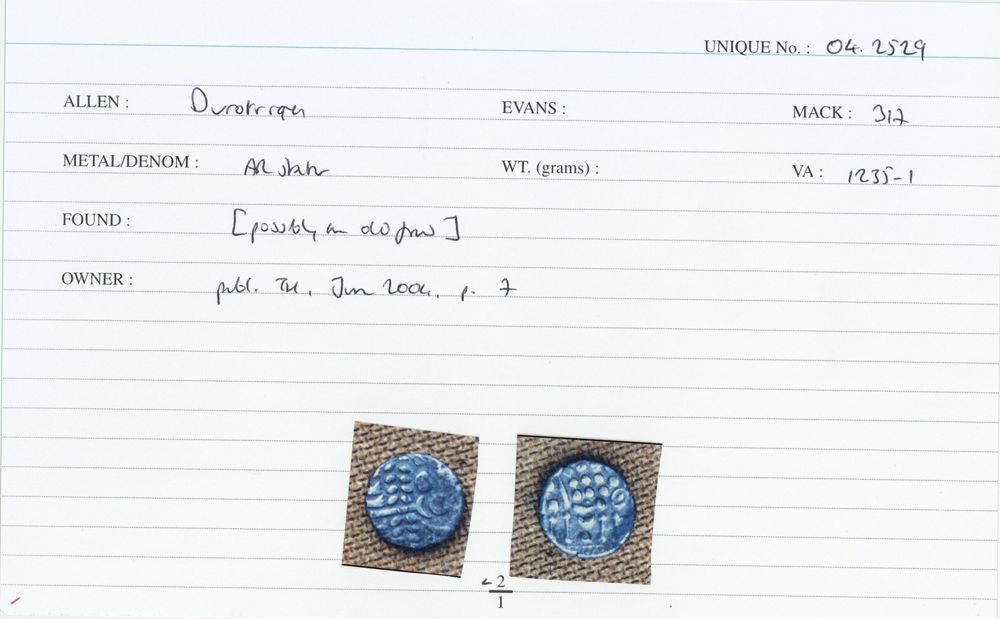 UNIQUE No. : 04. 2529
ALLEN : Durotrigan EVANS : MACK : 317
METAL/DENOM : AR stater WT. (grams) : VA : 1235-1
FOUND : [possibly an old find]
OWNER : publ. TH, June 2004, p. 7
2
1